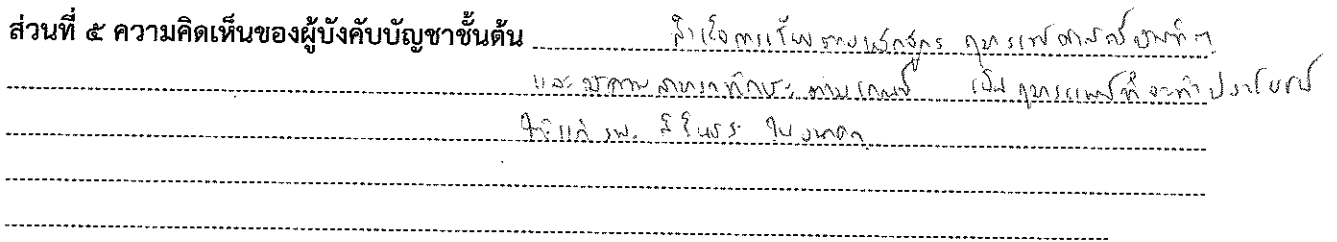 ส่วนที่ ๕ ความคิดเห็นของผู้บังคับบัญชาชั้นต้น สำเร็จการเรียนตามหลักสูตร กุมารเวชศาสตร์
และมีความสามารถทักษะตามเกณฑ์ เป็นกุมารแพทย์ที่จะทำประโยชน์
ให้แก่ รพ. สิรินธร ในอนาคต